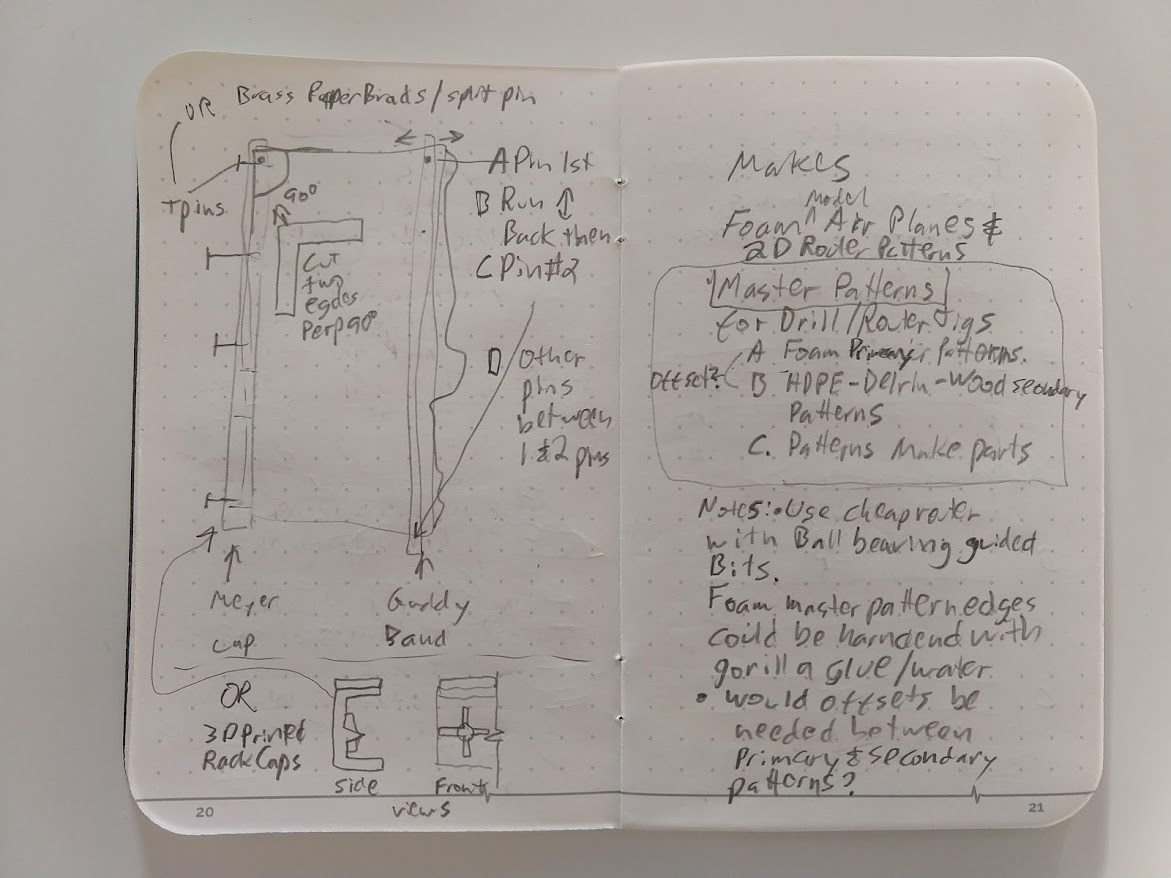 OR Brass Paper Brads/split pin
T pins
90°
Cut
two
egdes
Perp 90°
A Pin 1st
B Run ↕
Back then
C Pin #2
D Other
pins
between
1 & 2 pins
Meyer
Cap
Band
OR
3D Printed
Rack Caps
Side
Front
views
20
Makes
Foam Model Air Planes &
2D Router Patterns
Master Patterns
for Drill/Router Jigs
A Foam Primary Patterns.
offset?
B HDPE-Delrin-Wood secondary
Patterns
C. Patterns Make parts
Notes: • Use cheap router
with Ball bearing guided
Bits.
Foam master pattern edges
could be harndend with
gorilla Glue/water
• would offsets be
needed between
Primary & secondary
patterns?
21